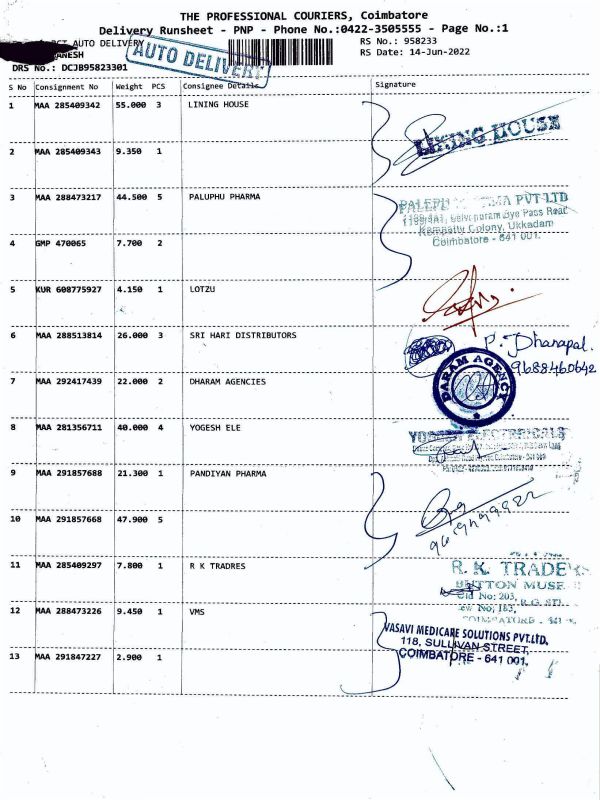 THE PROFESSIONAL COURIERS, Coimbatore
Delivery Runsheet - PNP - Phone No.:0422-3505555 - Page No.:1
AUTO DELIVERY RS No. : 958233
GANESH AUTO DELIVERY RS Date: 14-Jun-2022
DRS No.: DCJB95823301
S No Consignment No Weight PCS Consignee Details Signature
1 MAA 285409342 55.000 3 LINING HOUSE
LINING HOUSE
2 MAA 285409343 9.350 1
3 MAA 288473217 44.500 5 PALUPHU PHARMA
PVT LTD
Bye Pass Road
Colony, Ukkadam
Coimbatore - 641 001.
4 GMP 470065 7.700 2
5 KUR 608775927 4.150 1 LOTZU
6 MAA 288513814 26.000 3 SRI HARI DISTRIBUTORS
P. Dhanapal.
9688460642
7 MAA 292417439 22.000 2 DHARAM AGENCIES
DARAM AGENCY
8 MAA 281356711 40.000 4 YOGESH ELE
ELECTRICALS
9 MAA 291857688 21.300 1 PANDIYAN PHARMA
10 MAA 291857668 47.900 5
11 MAA 285409297 7.800 1 R K TRADRES
R. K. TRADERS
Old No: 203,
12 MAA 288473226 9.450 1 VMS
VASAVI MEDICARE SOLUTIONS PVT.LTD.
118, SULLIVAN STREET,
COIMBATORE - 641 001.
13 MAA 291847227 2.900 1